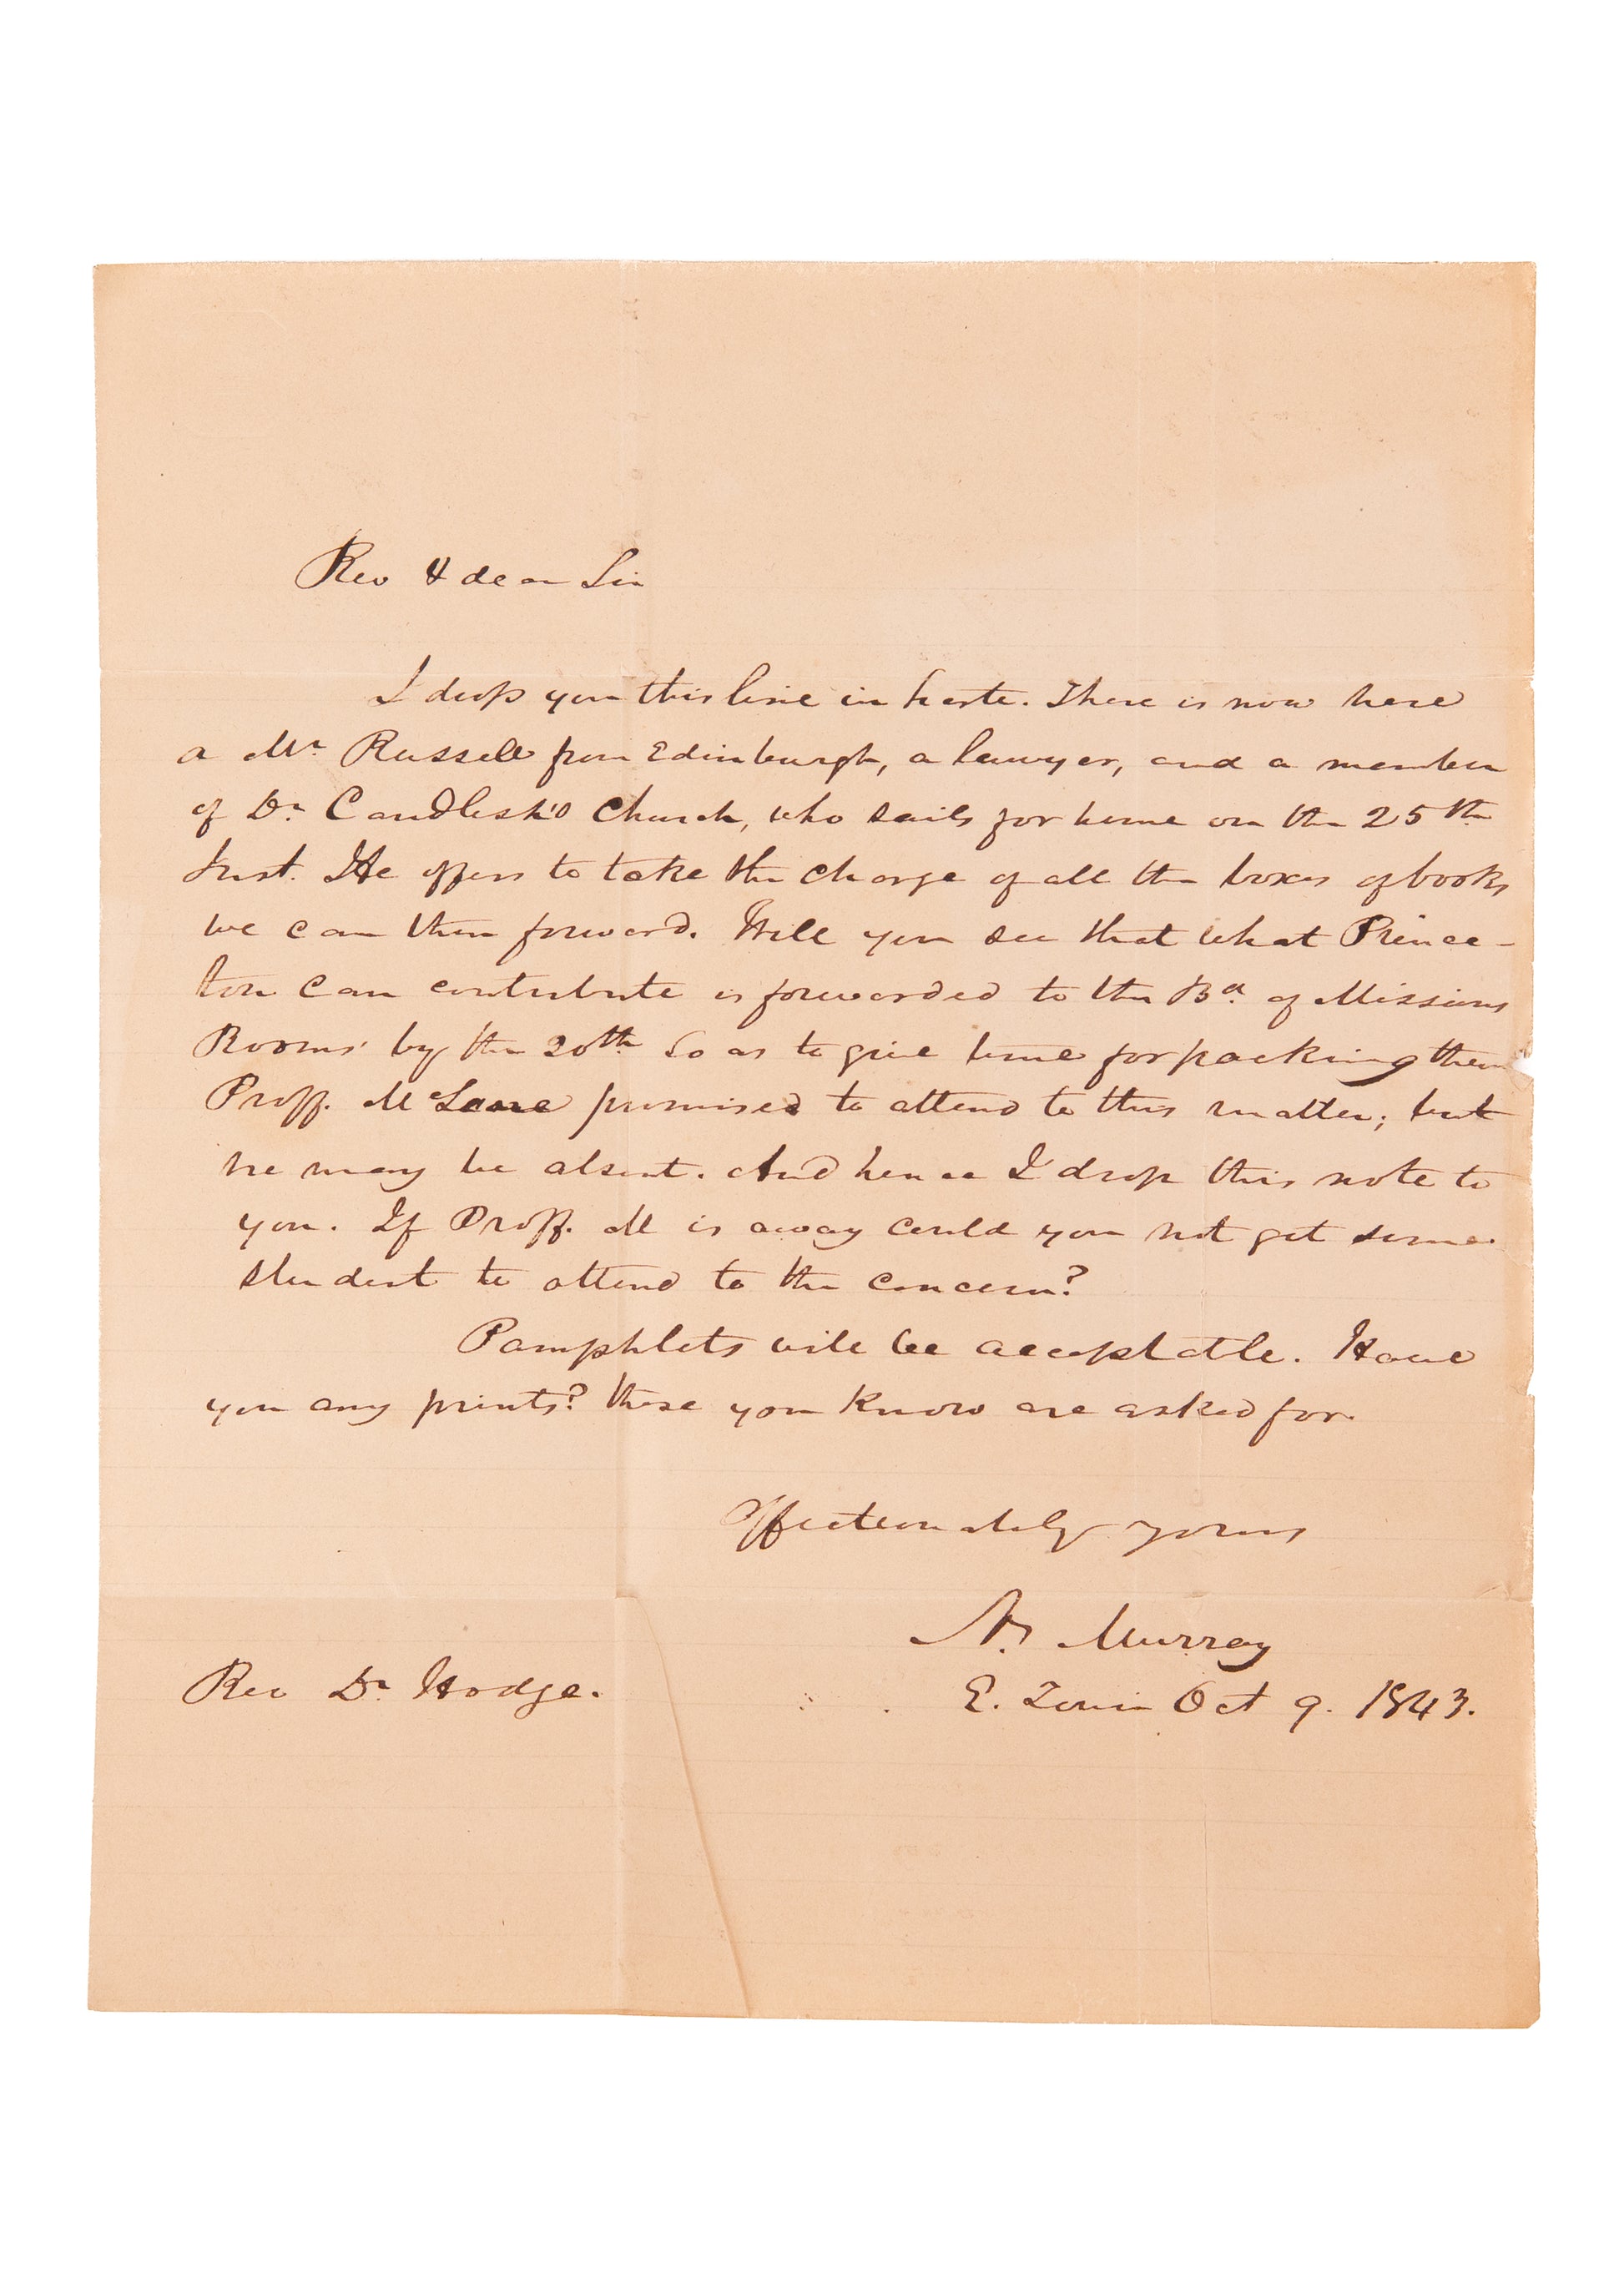 Rev & dear Sir
I drop you this line in haste. There is now here
a Mr Russell from Edinburgh, a lawyer, and a member
of Dr Candlish's church, who sails for home on the 25th
Inst. He offers to take the charge of all the boxes of books
we can then forward. Will you see that what Prince-
ton can contribute is forwarded to the Bd of Missions
Rooms by the 20th so as to give time for packing them
Proff. McLane promised to attend to this matter; but
he may be absent. And hence I drop this note to
you. If Proff. M is away could you not get some
student to attend to the concern?
Pamphlets will be acceptable. Have
you any prints? these you know are asked for.
Affectionately yours
N. Murray
Rev Dr Hodge.
E. Town Oct 9. 1843.